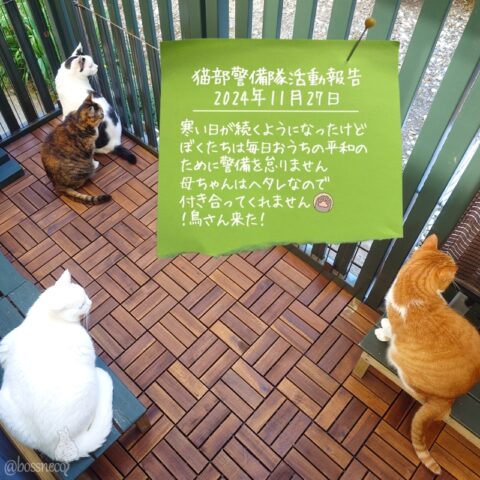 猫部警備隊活動報告
2024年11月27日
寒い日が続くようになったけど
ぼくたちは毎日おうちの平和の
ために警備を怠りません
母ちゃんはヘタレなので
付き合ってくれません
!鳥さん来た!
@bossneco